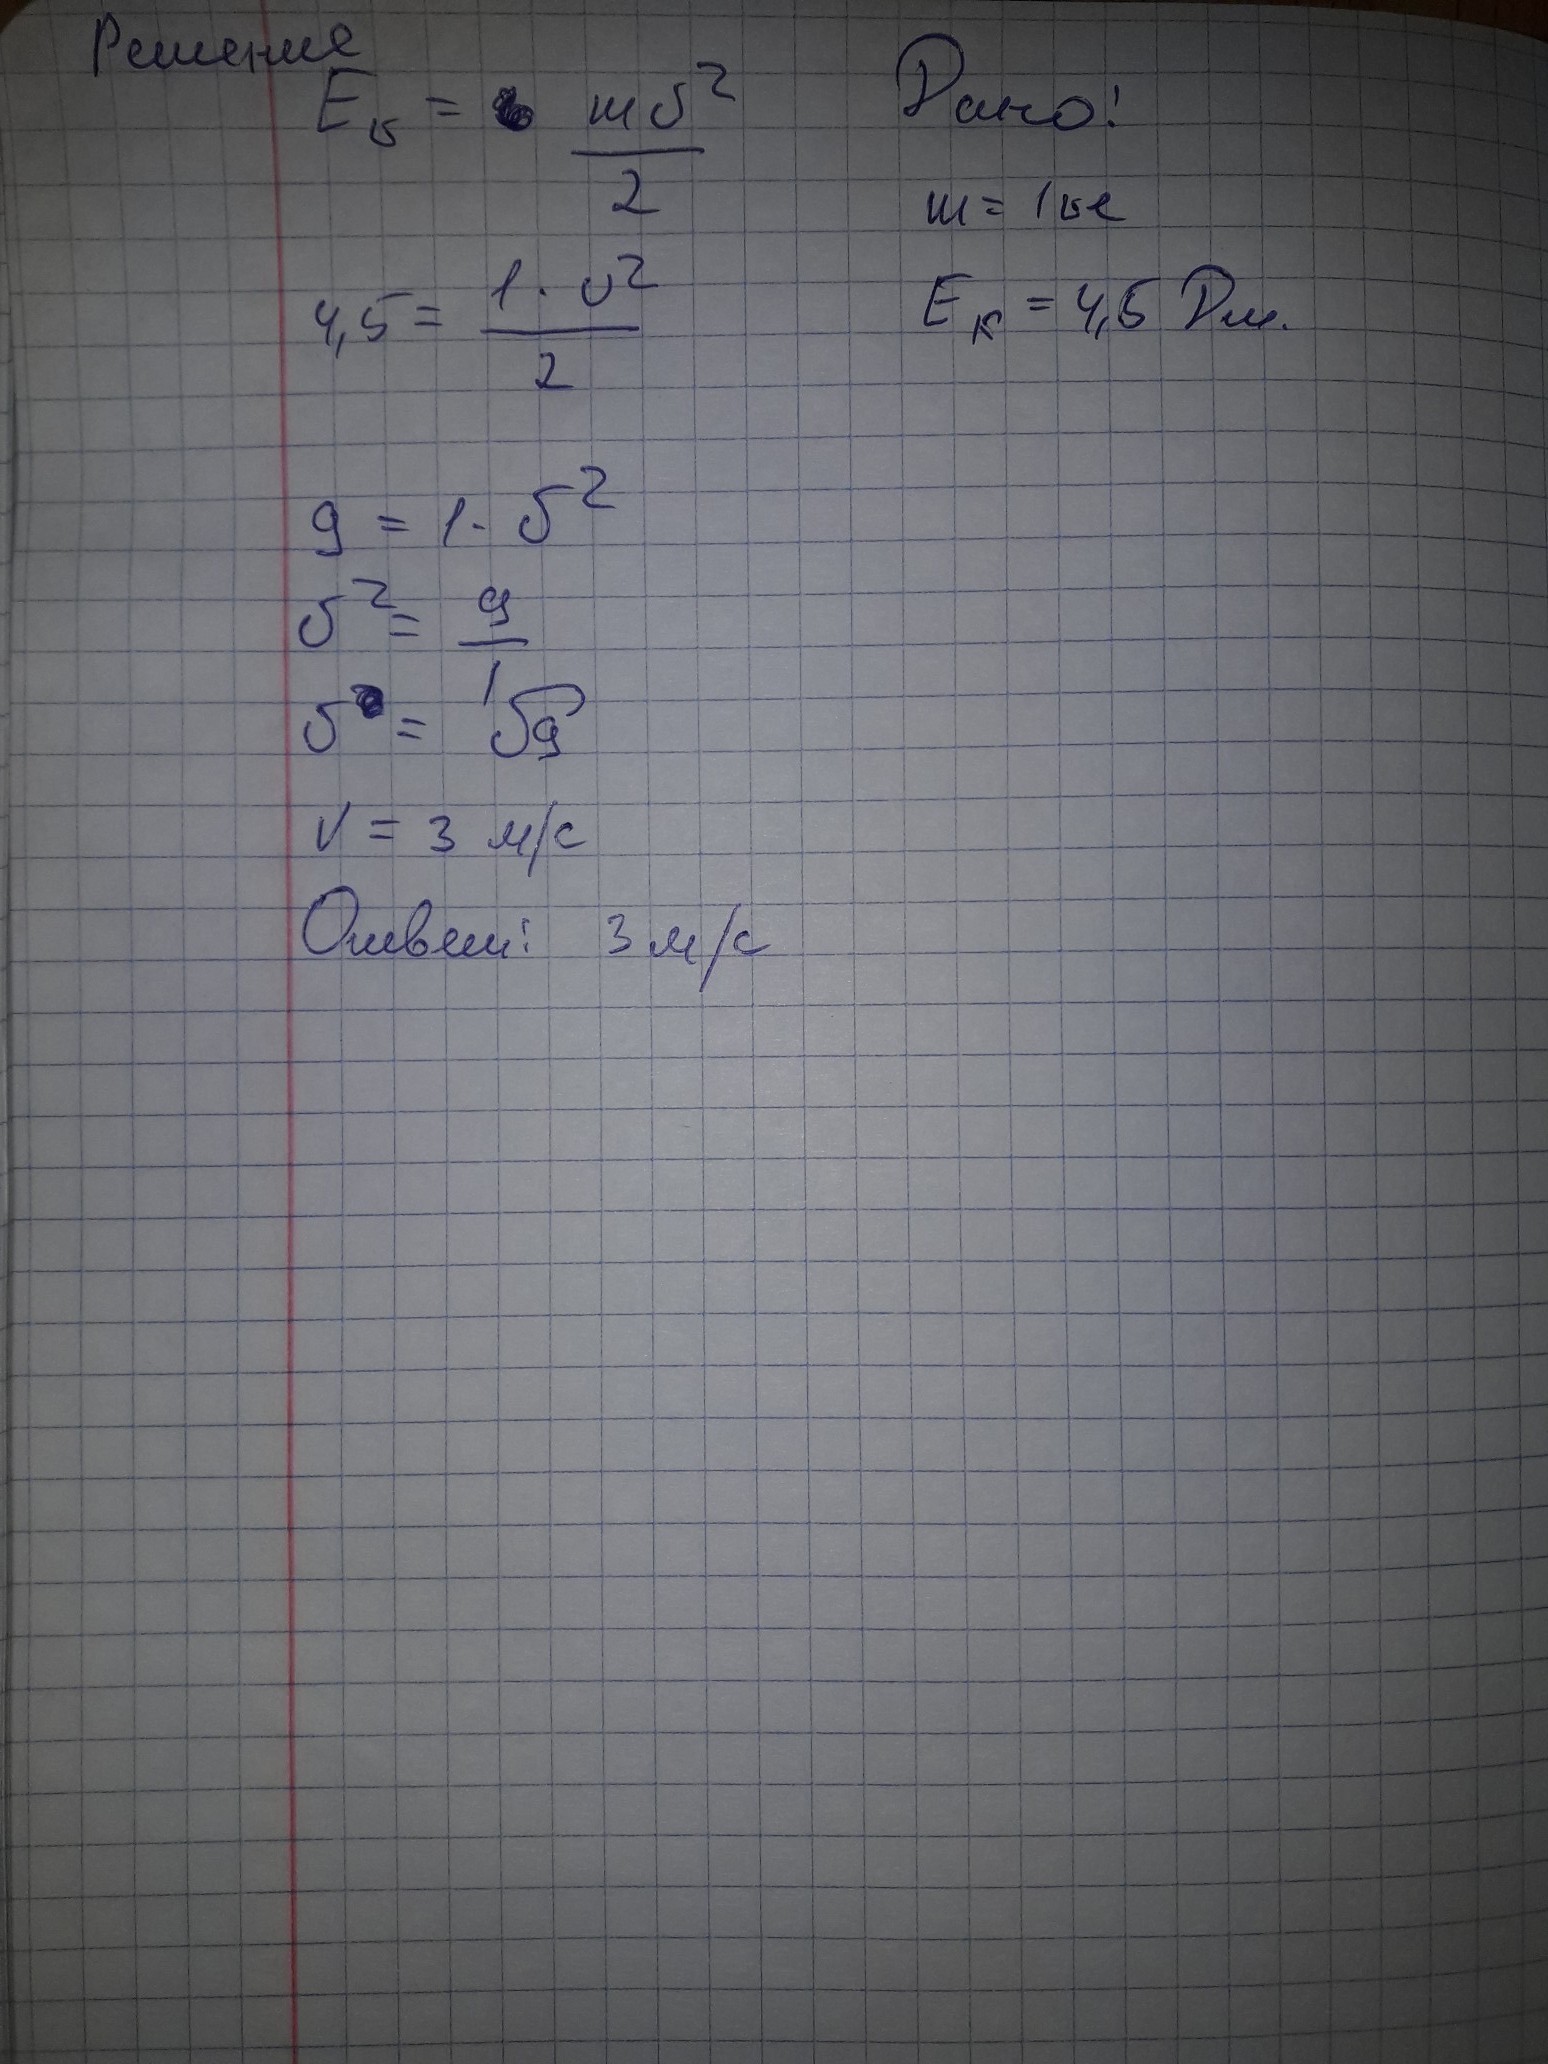 Решение
Eк = mv²/2
4,5 = 1·v²/2
9 = 1·v²
v² = 9/1
v = √9
v = 3 м/с
Ответ: 3 м/с
Дано:
m = 1 кг
Eк = 4,5 Дж.